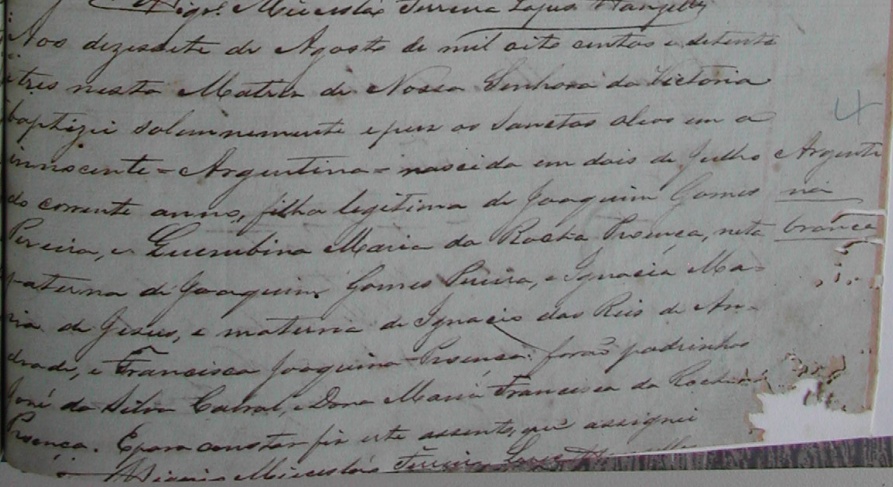 Vigrº. Miecesláo Ferreira Lopes Wanzeller
Aos dezessete de Agosto de mil oito centos e setenta
e tres nesta Matriz de Nossa Senhora da Victoria
baptizei solemnemente e puz os Sanctos oleos em a
innocente = Argentina = nascida em dois de Julho
do corrente anno, filha legitima de Joaquim Gomes
Pereira, e Maria da Rocha Proença, neta
paterna de Joaquim Gomes Pereira, e Ignacia Ma-
ria de Jesus, e materna de Ignacio dos Reis de An-
drade, e Francisca Joaquina Proença: forão padrinhos
José da Silva Cabral, e Dona Maria Francisca da Rocha
Proença. E para constar fiz este assento, que assignei
Miecesláo Ferreira Lopes
Argenti
na
branca
4